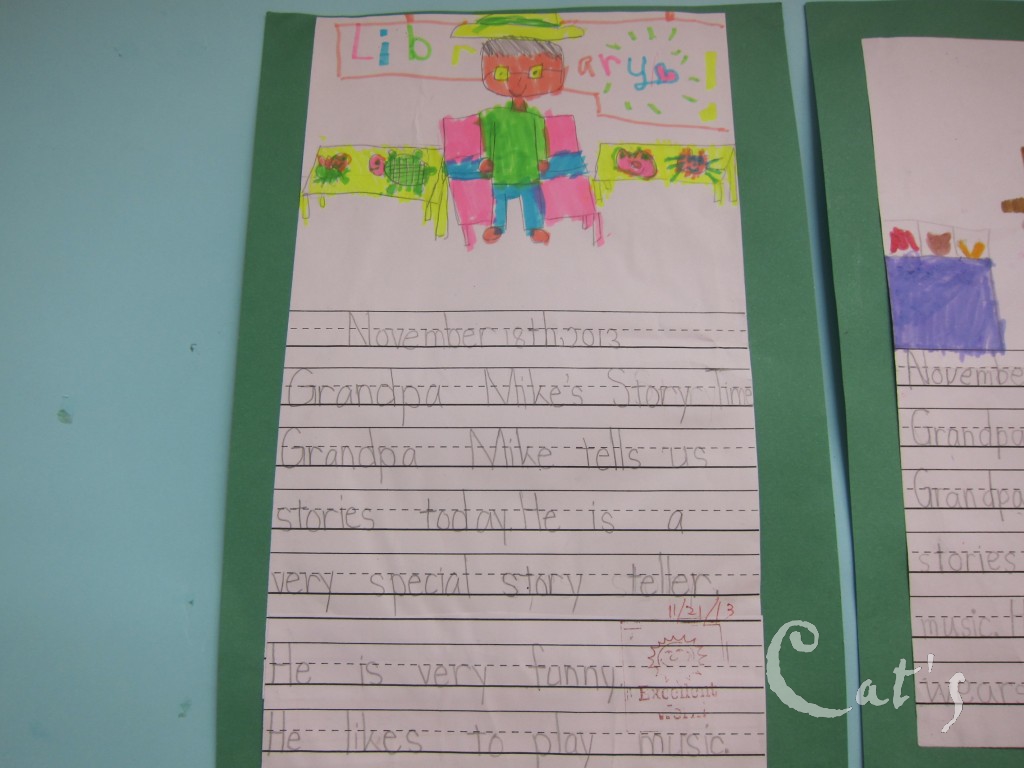 Library!
November 18th 2013
Grandpa Mike's Story Time
Grandpa Mike tells us
stories today. He is a
very special story teller.
11/21/13
He is very fonny.
Excellent
He likes to play music.
November
Grandpa
Grandpa
stories
music. H
wears
Cat's